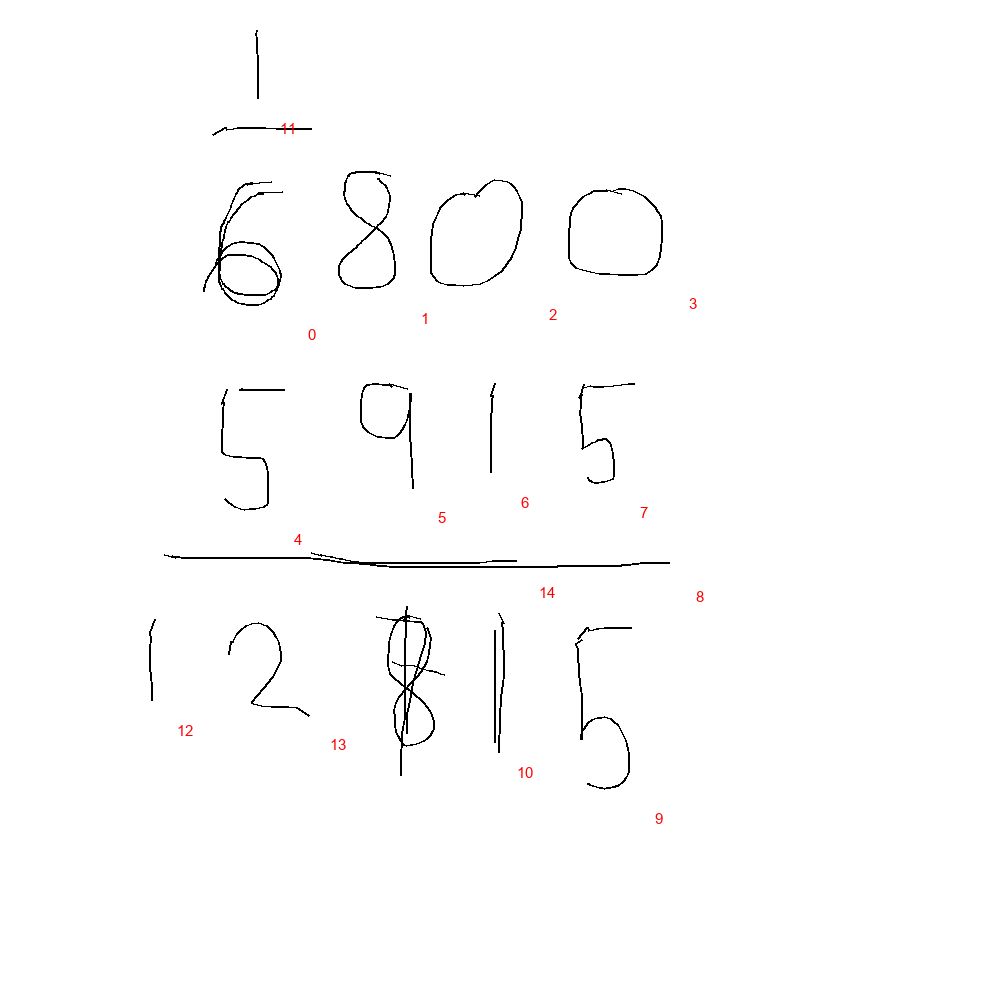 1
11
6 8 0 0
0 1 2 3
5 9 1 5
4 5 6 7
14 8
1 2 1 5
12 13 10 9